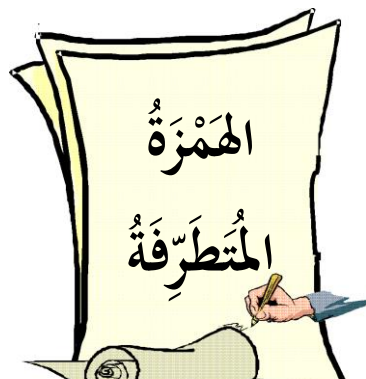 الهَمْزَةُ
المُتَطَرِّفَةُ